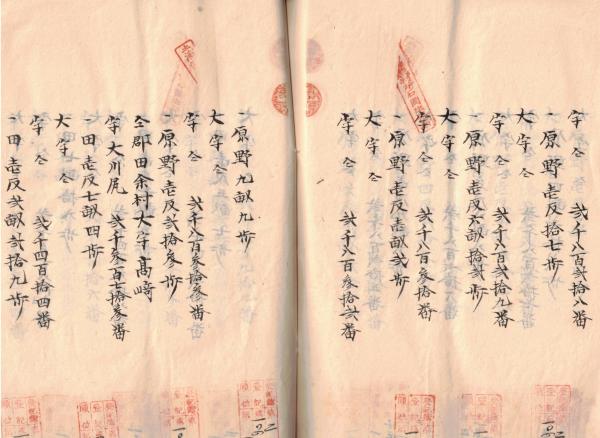 字仝 弐千八百弐拾八番
一原野壱反拾七歩
大字仝
字仝 弐千八百弐拾九番
一原野壱反六畝拾弐歩
大字仝
字仝 弐千八百参拾番
一原野壱反壱畝弐歩
大字仝
字仝 弐千八百参拾弐番
原野九畝九歩
大字仝
字仝 弐千八百参拾参番
一原野壱反弐拾参歩
仝郡田余村大字高崎
字大川尻 弐千参百七拾参番
一田壱反七畝四歩
大字仝
字仝 弐千四百拾四番
一田壱反弐畝弐拾九歩